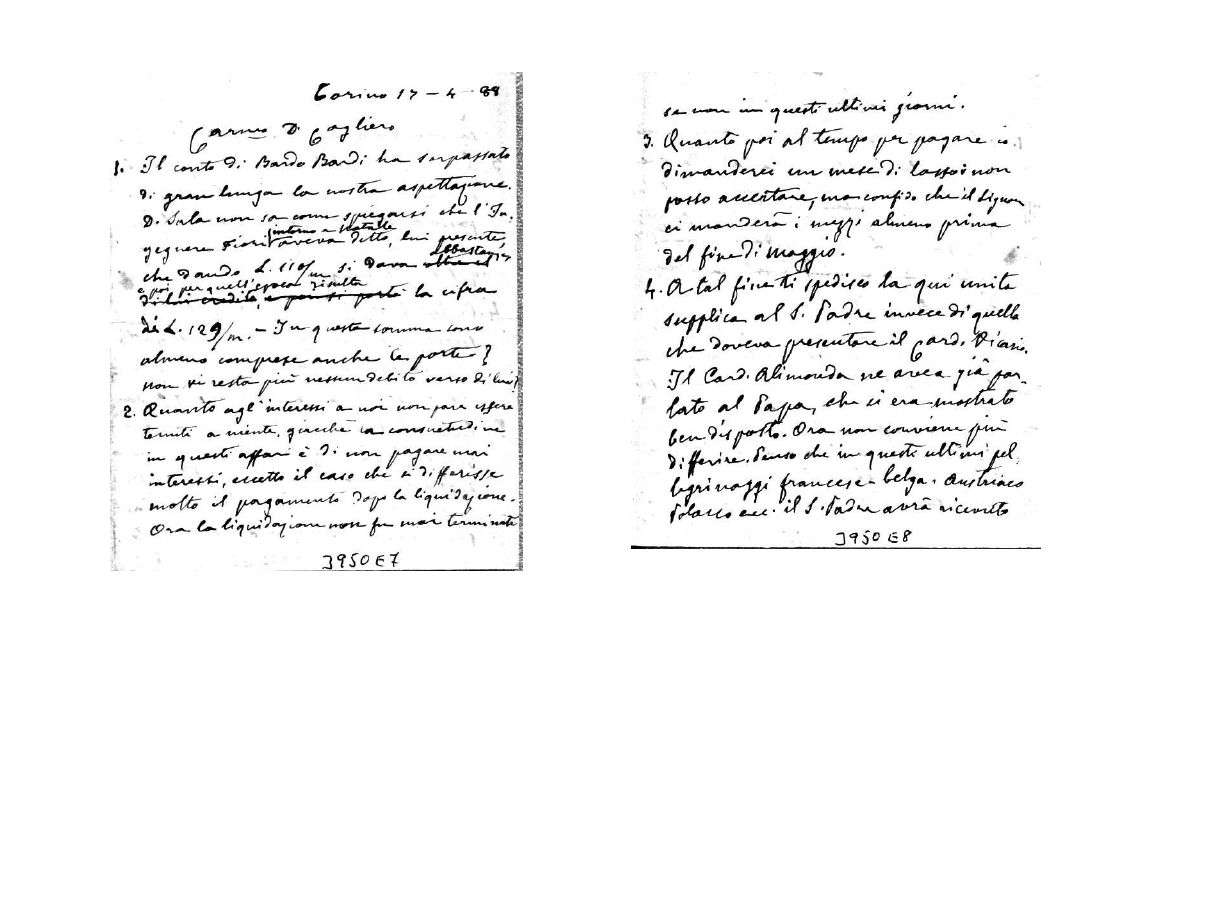 Torino 17 – 4 – 88
Carmo D. Cagliero
1. Il conto di Bardo Bardi ha sorpassato
di gran lunga la nostra aspettazione.
D. Sala non sa come spiegarsi che l'In-
gegnere Fiori intorno a Natale aveva detto, lui presente,
che dando L. 110/m si dava abbastanza oltre il
e poi per quell'epoca risulta
di lui credito, e poi si porta la cifra
di L. 129/m. – In questa somma sono
almeno comprese anche le porte?
non vi resta più nessun debito verso di lui?
2. Quanto agl'interessi a noi non pare essere
tenuti a niente, giacchè la consuetudine
in questi affari è di non pagare mai
interessi, eccetto il caso che si differisse
molto il pagamento dopo la liquidazione.
Ora la liquidazione non fu mai terminata
J950E7
se non in questi ultimi giorni.
3. Quanto poi al tempo per pagare io
dimanderei un mese di lasso: non
posso accertare, ma confido che il Signore
ci manderà i mezzi almeno prima
del fine di Maggio.
4. A tal fine ti spedisco la qui unita
supplica al S. Padre invece di quella
che doveva presentare il Card. Vicario.
Il Card. Alimonda ne aveva già par-
lato al Papa, che si era mostrato
ben disposto. Ora non conviene più
differire. Penso che in questi ultimi pel-
legrinaggi francese - belga - Austriaco
Polacco ecc. il S. Padre avrà ricevuto
J950E8